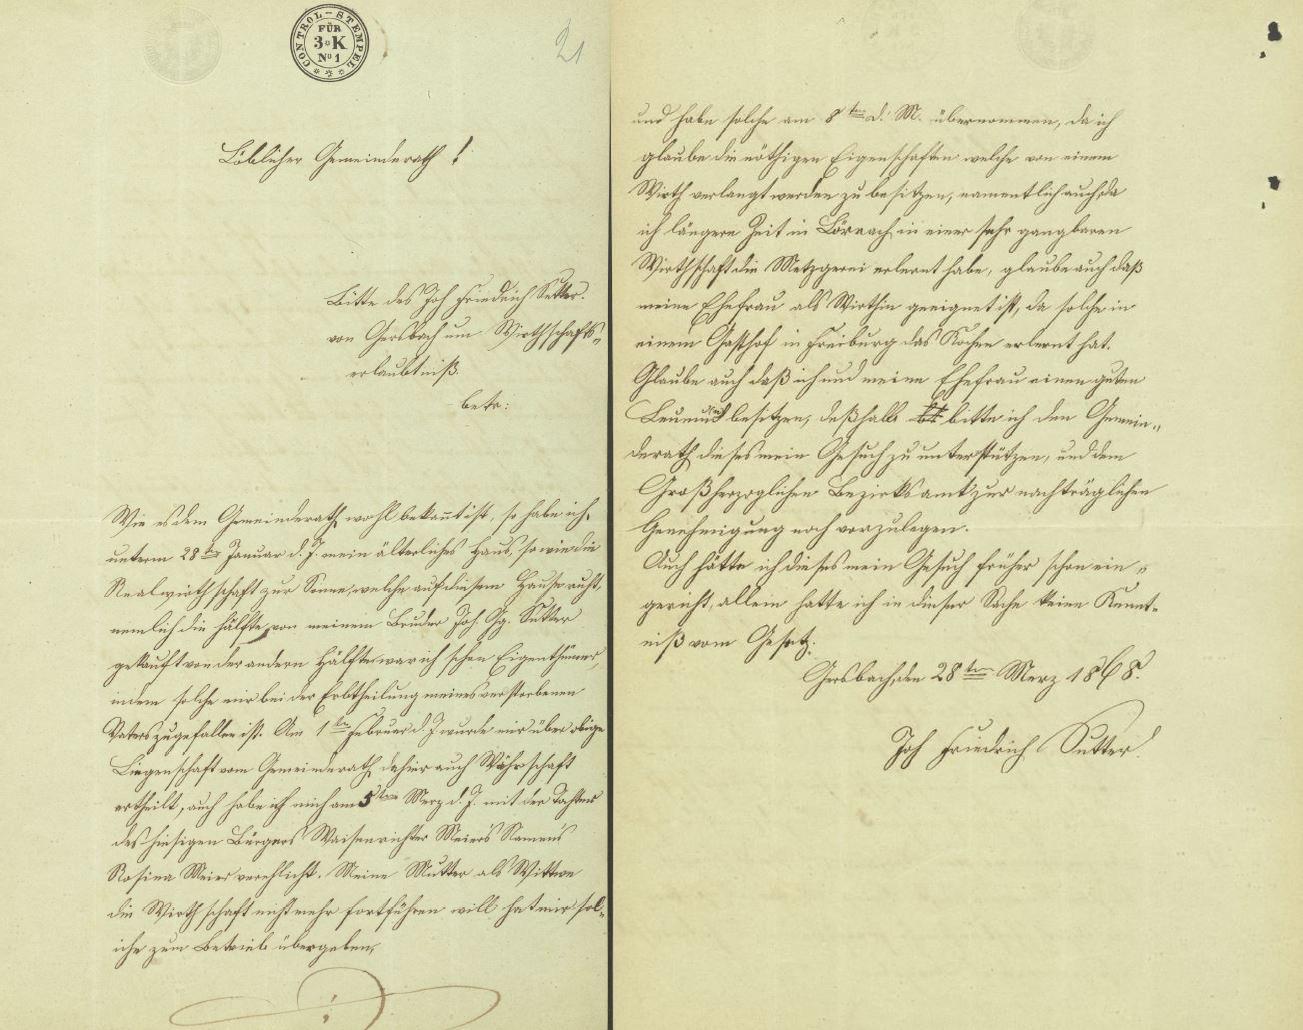 CONTROL-STEMPEL
FÜR
3 K
No 1
21
Löblicher Gemeinderath!
Bitte des Joh Friedrich Sutter.
von Gersbach um Wirthschafts„
erlaubtniß.
betr:
Wie es dem Gemeinderath wohl bekant ist, so habe ich,
unterm 28ten Januar d. J. mein älterliches Haus, so wie die
Realwirthschaft zur Sonne, welche auf diesem Hause ruht,
nemlich die Hälfte von meinem Bruder Joh. Gg. Sutter
gekauft von der andern Hälfte war ich schon Eigenthümer,
indem solche mir bei der Erbtheilung meines verstorbenen
Vaters zugefallen ist. Am 1ten Februar d. J wurde mir über obige
Liegenschaft vom Gemeinderath dahier auch Währschaft
ertheilt, auch habe ich mich am 5ten Merz d. J. mit der Tochter
des hiesigen Bürgers Waisenrichter Meiers Namens
Rosina Meier verehlicht. Meine Mutter als Wittwe
die Wirthschaft nicht mehr fortführen will hat mir sol„
che zum Betrieb übergeben,
und habe solche am 8ten d. M. übernommen, da ich
glaube die nöthigen Eigenschaften welche von einem
Wirth verlangt werden zu besitzen, namentlich auch da
ich längere Zeit in Lörrach in einer sehr gangbaren
Wirthschaft die Metzgerei erlernt habe, glaube auch daß
meine Ehefrau als Wirthin geeignet ist, da solche in
einem Gasthof in Freiburg das Kochen erlernt hat.
Glaube auch daß ich und meine Ehefrau einen guten
Leumund besitzen, deßhalb bitte ich den Gemein„
derath dieses mein Gesuch zu unterstützen, und dem
Großherzoglichen Bezirksamt zur nachträglichen
Genehmigung noch vorzulegen.
Auch hätte ich dieses mein Gesuch früher schon ein„
gericht, allein hatte ich in dieser Sache keine Kennt-
niß vom Gesetz.
Gersbach, den 28ten Merz 1868.
Joh Friedrich Sutter.